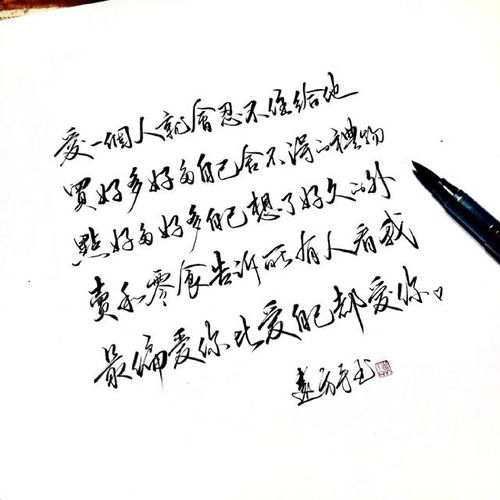 愛一個人就會忍不住給他
買好多好多自己舍不得的禮物
點好多好多自己想了好久的外
賣和零食告訴所有人看我
最偏愛你比愛自己都愛你♡